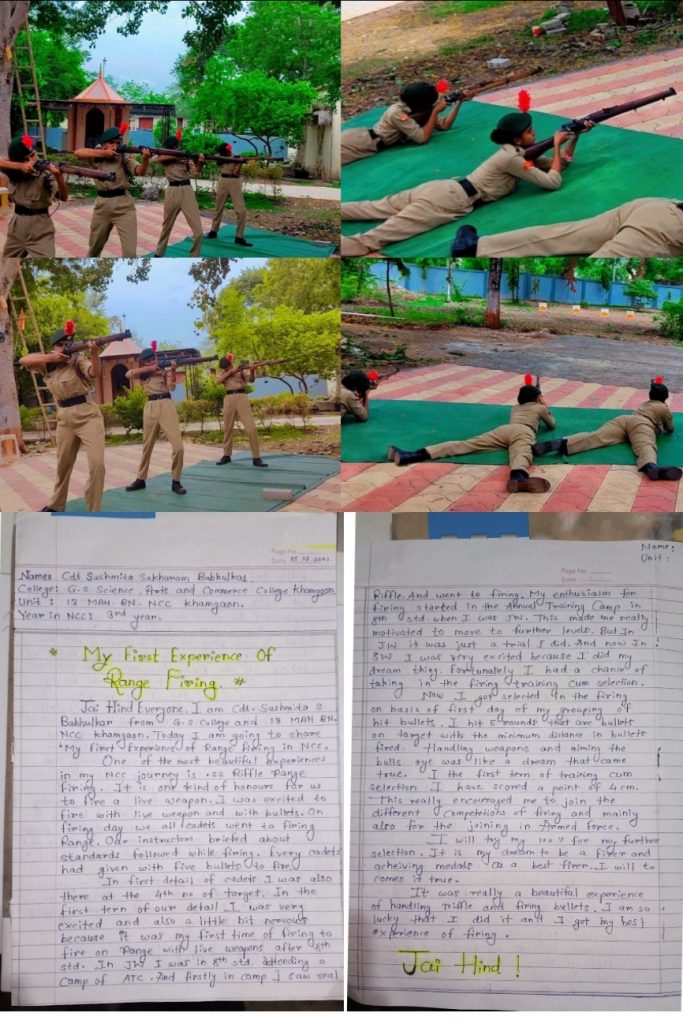 Page No
Date 05.08.2021
Name: Cdt Sushmita Sakharam Babhulkar
College: G.S. Science, Arts and Commerce College Khamgaon.
Unit : 13 MAH. BN. NCC Khamgaon.
Year in NCC: 3rd year.
* My First Experience Of
Range Firing. #
Jai Hind Everyone. I am Cdt. Sushmita S.
Babhulkar from G.S. College and 13 MAH BN.
NCC Khamgaon. Today I am going to share
"My first Experience of Range Firing in NCC.
One of the most beautiful experiences
in my NCC journey is .22 Riffle Range
Firing. It is one kind of honours for us
to fire a live weapon. I was excited to
fire with live weapon and with bullets. On
firing day we all cadets went to firing
Range. Our instructor briefed about
standards followed while firing. Every cadets
had given with five bullets to fire.
In first detail of cadets I was also
there at the 4th no of target. In the
first tern of our detail. I was very
excited and also a little bit nervous
because it was my first time of firing to
fire on range with live weapons after 8th
std. In JW I was in 8th std. attending a
Camp of ATC. And firstly in camp I saw real
Name:
Unit :
Page No.
Date
Riffle. And went to firing. My enthusiasm for
firing started in the Annual Training Camp in
8th std when I was JW. This made me really
motivated to move to further levels. But In
JW it was just a trial I did. And now In
SW I was very excited because I did my
dream thing. Fortunately I had a chance of
taking in the firing training cum selection.
Now I got selected in the firing
on basis of first day of my grouping of
hit bullets. I hit 5 rounds that are bullets
on target with the minimum distance in bullets
fired. Handling weapons and aiming the
bulls eye was like a dream that came
true. I the first tern of training cum
selection I have scored a point of 4 cm.
This really encouraged me to join the
different competions of firing and mainly
also for the joining in Armed Force.
I will try my 100% for my further
selection. It is my dream to be a firer and
acheiving medals as a best firer. I will to
comes it true.
It was really a beautiful experience
of handling riffle and firing bullets. I am so
lucky that I did it and I got my best
experience of firing.
Jai Hind !